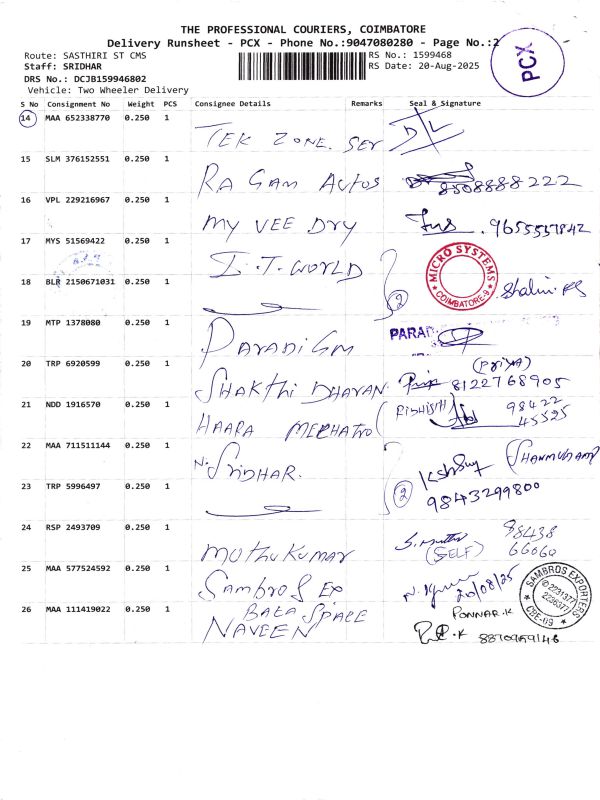 THE PROFESSIONAL COURIERS, COIMBATORE
Delivery Runsheet - PCX - Phone No.:9047080280 - Page No.:2
PCX
Route: SASTHIRI ST CMS
RS No.: 1599468
Staff: SRIDHAR
RS Date: 20-Aug-2025
DRS No.: DCJB159946802
Vehicle: Two Wheeler Delivery
S No Consignment No Weight PCS Consignee Details Remarks Seal & Signature
14 MAA 652338770 0.250 1 TEK ZONE. SER D/L
15 SLM 376152551 0.250 1 RA GAM AUTOS 8508888222
16 VPL 229216967 0.250 1 MY VEE DRY 9655557842
17 MYS 51569422 0.250 1 I.T. WORLD
MICRO SYSTEMS
COIMBATORE-9
18 BLR 2150671031 0.250 1 2 Shalini
19 MTP 1378080 0.250 1 PARADIGM PARAD
20 TRP 6920599 0.250 1 SHAKTHI DHARAN (Priya)
8122768905
21 NDD 1916570 0.250 1 HAARA 98422
45525
22 MAA 711511144 0.250 1 N. SRIDHAR.
23 TRP 5996497 0.250 1 2 9843299800
24 RSP 2493709 0.250 1 MUTHUKUMAR (SELF) 98438
66060
25 MAA 577524592 0.250 1 SAMBROS EX 20/08/25
SAMBROS EXPORTERS
2231377
2236377
CBE-09
26 MAA 111419022 0.250 1 BALA SPACE
NAVEEN
PONNAR.K